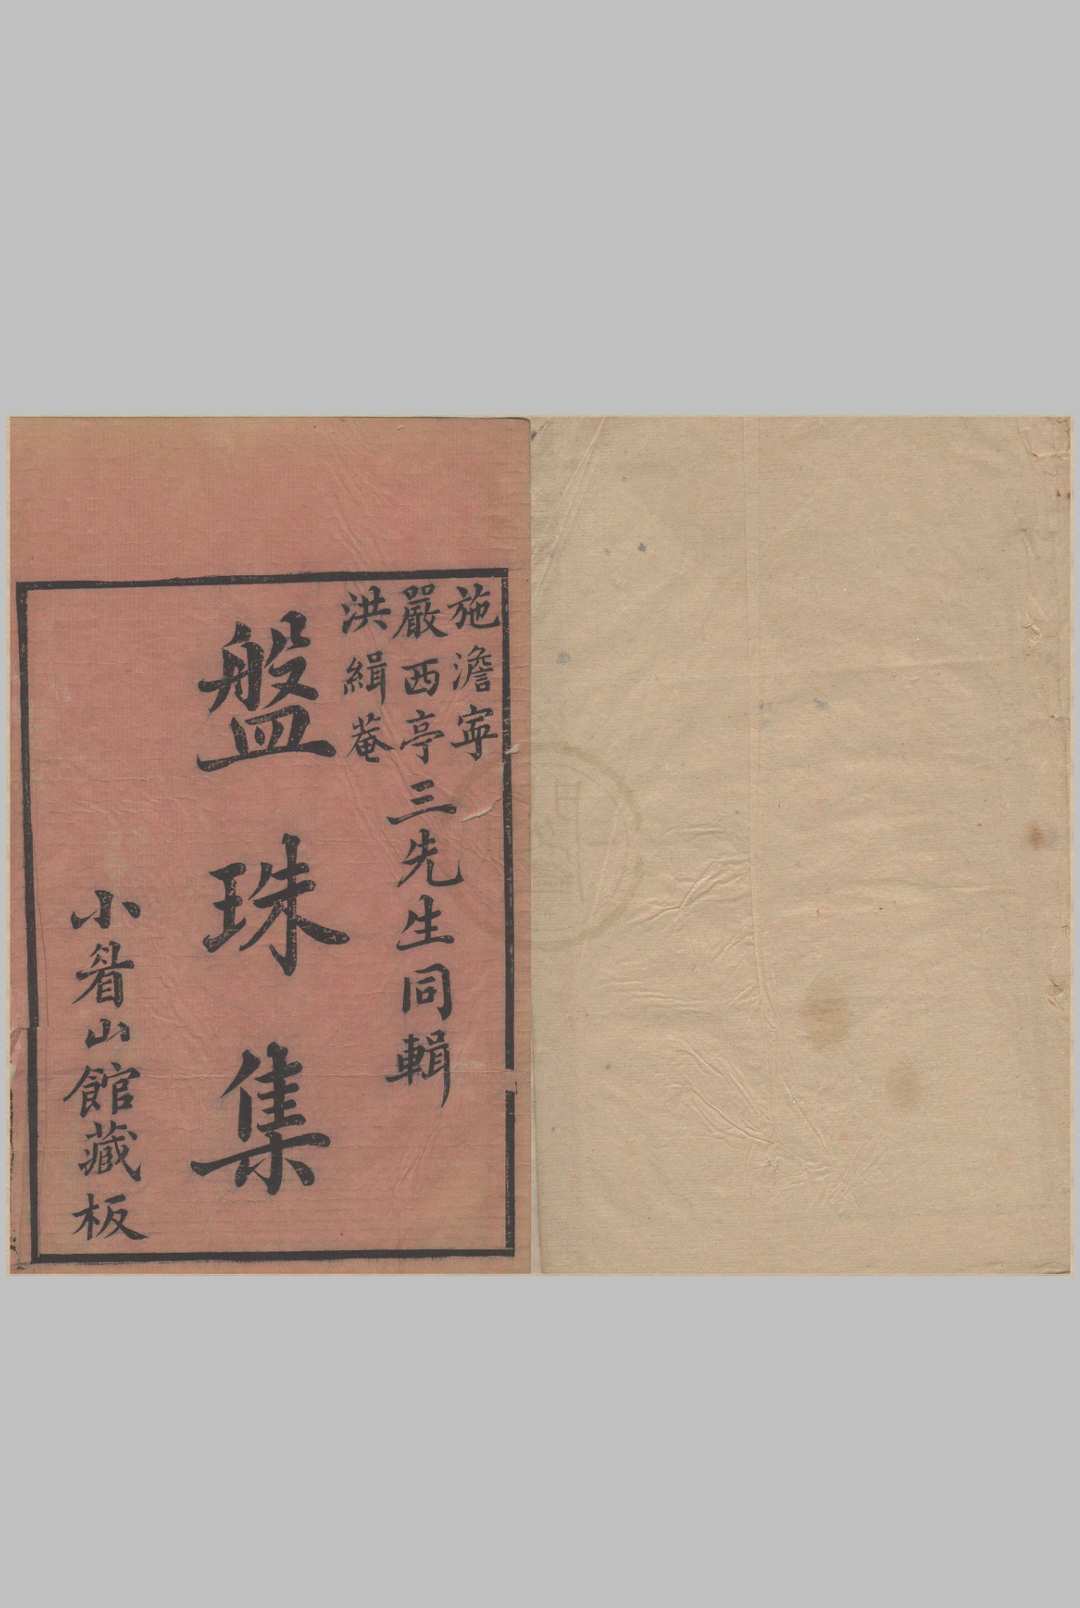 施澹寜
嚴西亭
洪緝菴
三先生同輯
盤珠集
小眉山館藏板